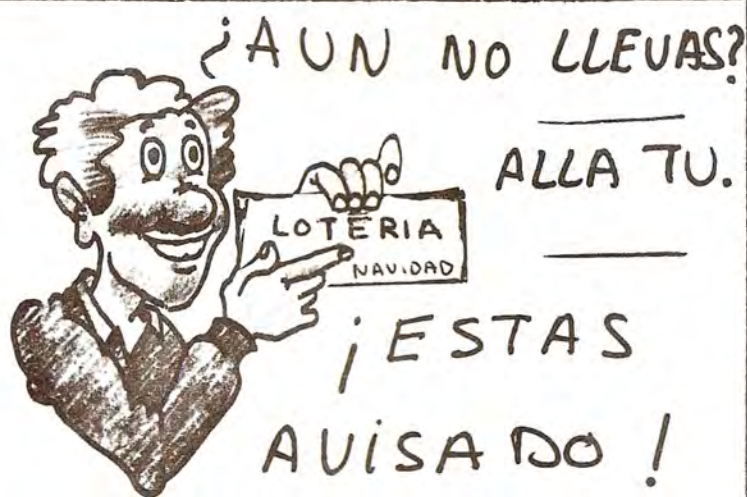 ¿AUN NO LLEVAS?
ALLA TU.
LOTERIA
NAVIDAD
¡ESTAS
AVISADO!